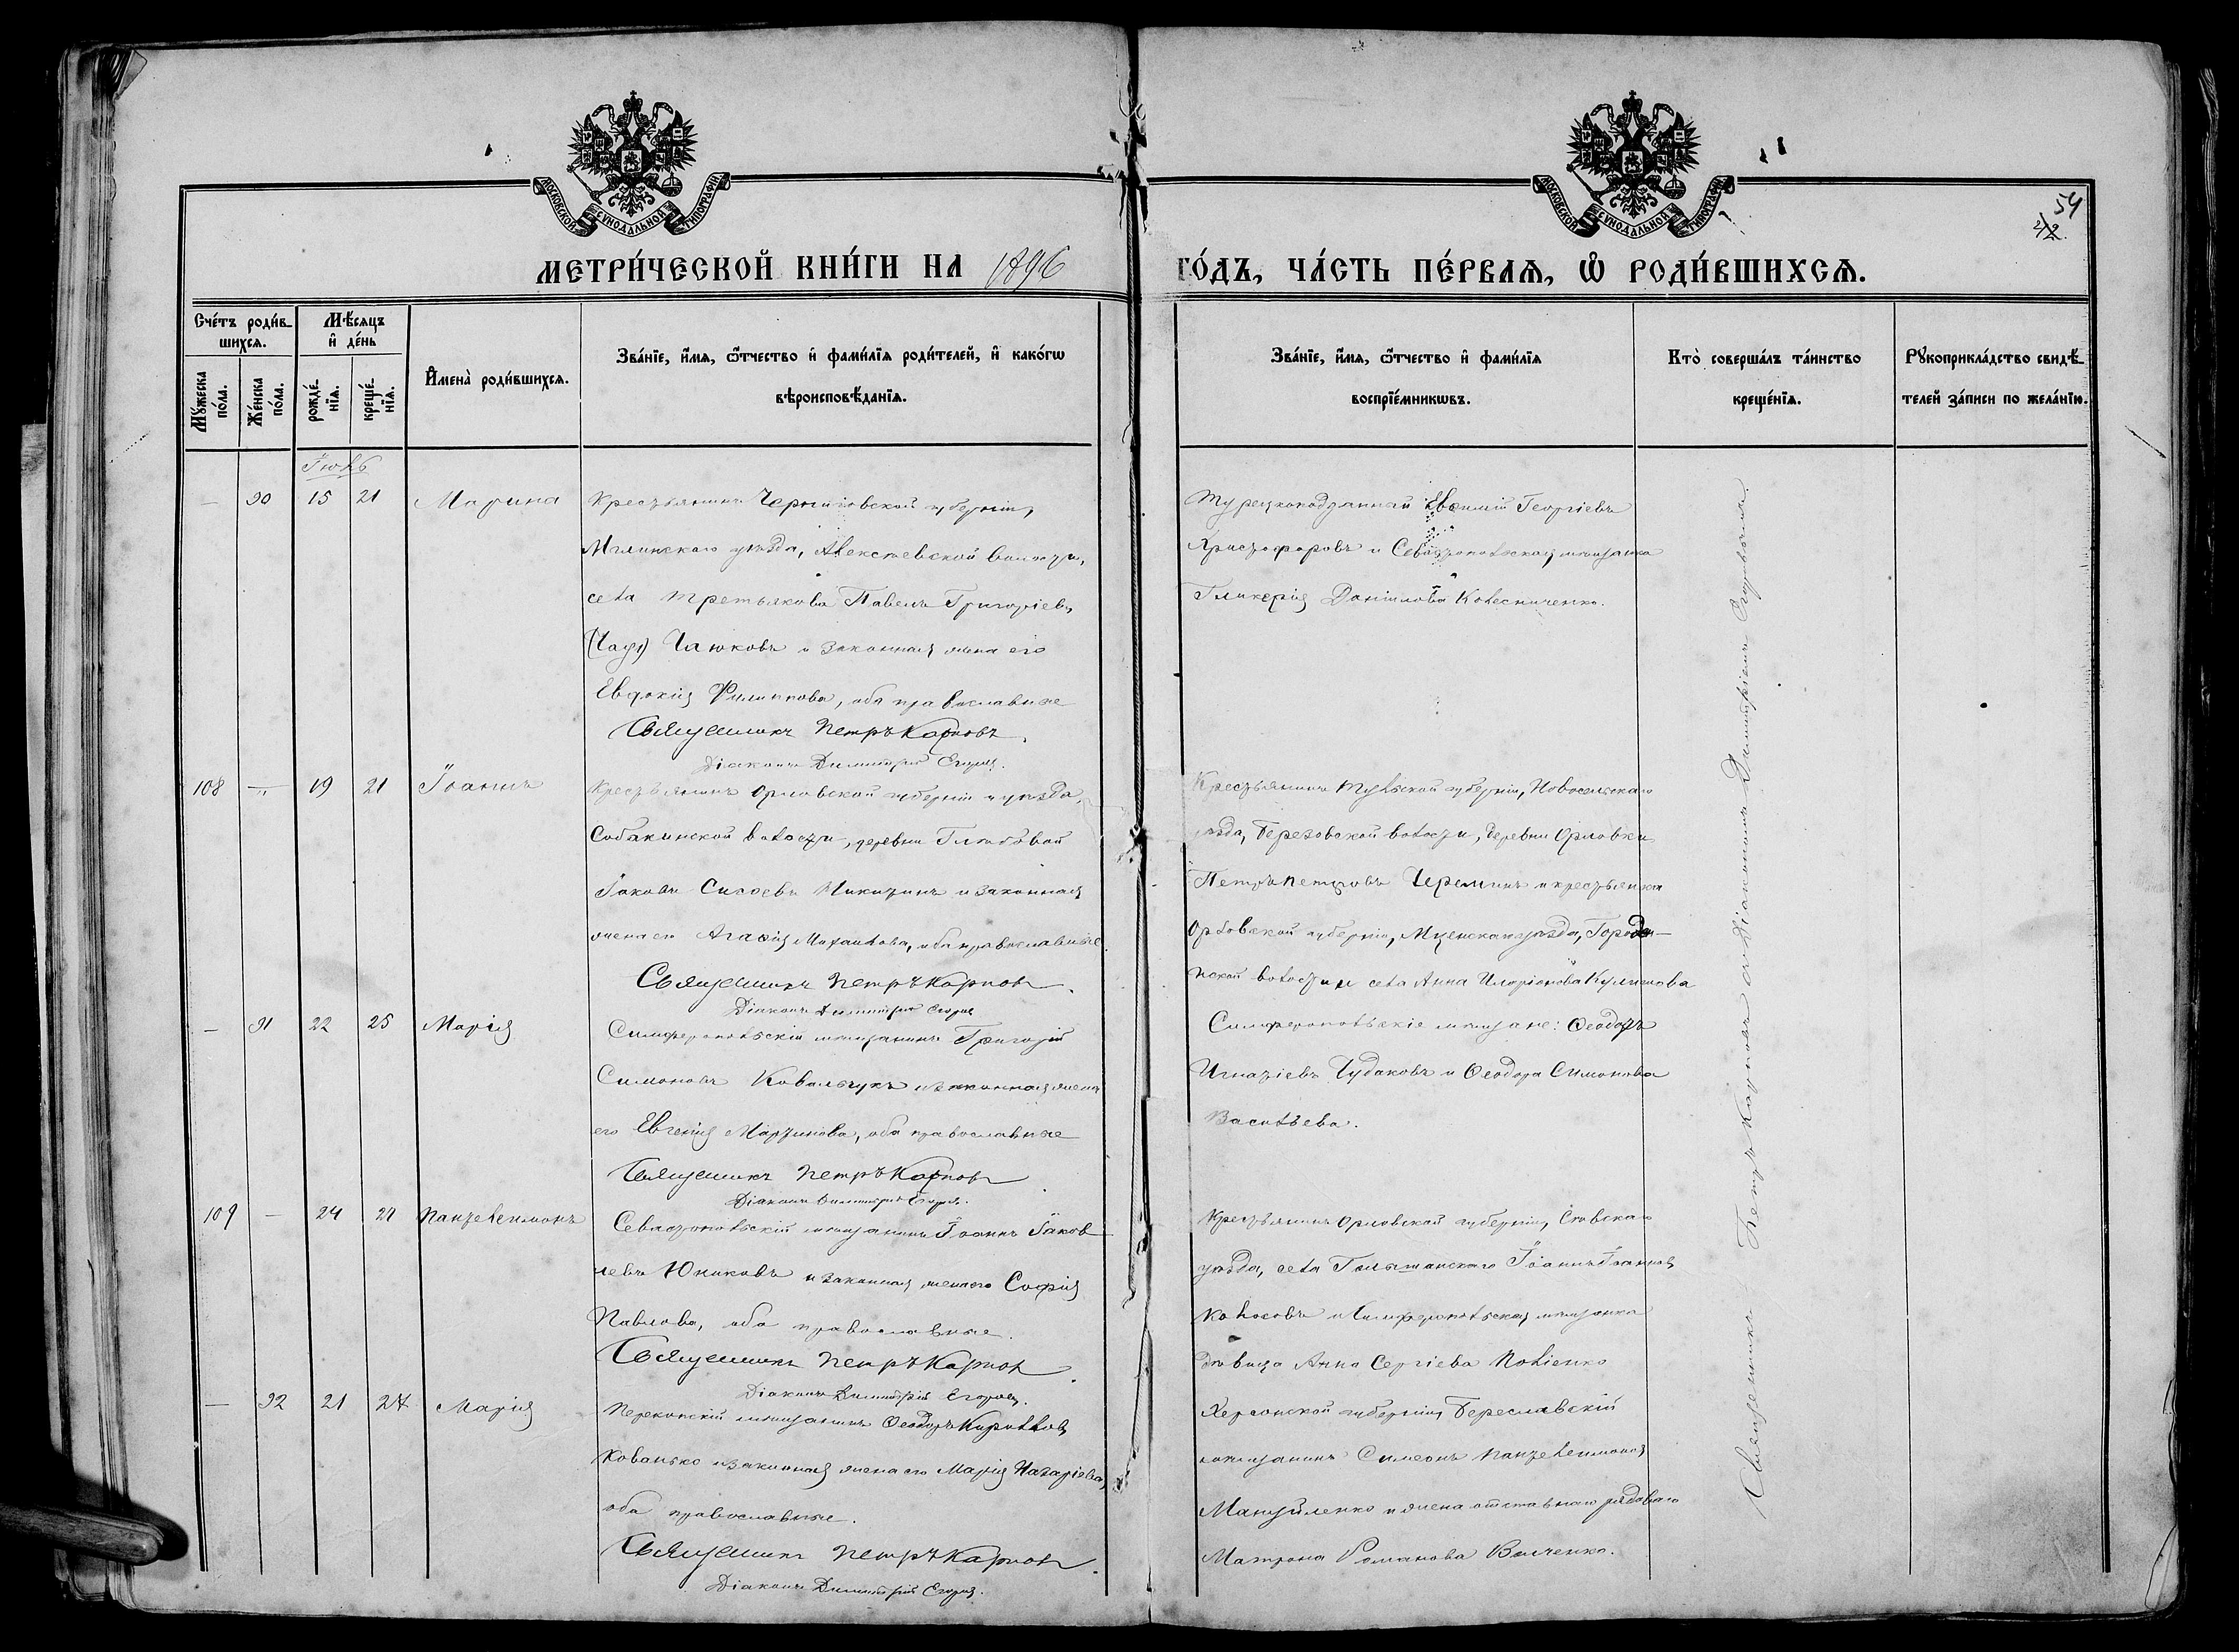 МОСКОВСКОЙ СУНОДАЛЬНОЙ ТИПОГРАФІИ
МОСКОВСКОЙ СУНОДАЛЬНОЙ ТИПОГРАФІИ
54
МЕТРИ́ЧЕСКОЙ КНИ́ГИ НА 1896 ГО́ДЪ, ЧА́СТЬ ПЕ́РВАѦ, Ѡ҆ РОДИ́ВШИХСѦ.
Сче́тъ роди́в-
шихсѧ.
Мꙋ́жеска по́ла.
Же́нска по́ла.
Мѣ́сѧцъ
и҆ де́нь
рожде́-
нїѧ.
креще́-
нїѧ.
И҆мена̀ роди́вшихсѧ.
Зва́нїе, и҆́мѧ, ѻ҆́тчество и҆ фами́лїѧ роди́телей, и҆ како́гѡ
вѣроисповѣ́данїѧ.
Зва́нїе, и҆́мѧ, ѻ҆́тчество и҆ фами́лїѧ
воспрїе́мникѡвъ.
Кто̀ соверша́лъ та́инство
креще́нїѧ.
Рꙋкоприкла́дство свидѣ́-
телей за́писи по жела́нїю.
Іюль
— 90 15 21 Марина
Крестьянинъ Черниговской губерніи,
Мглинскаго уѣзда, Алексѣевской волости,
села Третьякова Павелъ Григоріевъ
Чаюковъ и законная жена его
Евдокія Филиппова, оба православные
Священникъ Петръ Карповъ.
Діаконъ Димитрій Егоров.
Турецкоподданный Евѳимій Георгіевъ
Христофоровъ и Севастопольская мѣщанка
Гликерія Даніилова Колесниченко.
108 — 19 21 Іоаннъ
Крестьянинъ Орловской губерніи и уѣзда,
Собакинской волости, деревни Глѣбовой
Іаковъ Сысоевъ Никитинъ и законная
жена его Агаѳія Михаилова, оба православные.
Священникъ Петръ Карпов.
Діаконъ Димитрій Егоров
Крестьянинъ Тульской губерніи, Новосельскаго
уѣзда, Березовской волости, деревни Орловки
Петръ Петровъ Черемин и крестьянка
Орловской губерніи, Мценскаго уѣзда,
волости и села Анна Иларіонова
— 91 22 25 Марія
Симферопольскій мѣщанинъ Григорій
Симоновъ Ковальчукъ и законная жена
его Евгенія Мартинова, оба православные
Священникъ Петръ Карпов.
Діаконъ Димитрій Егоров.
Симферопольскіе мѣщане: Ѳеодоръ
Игнатіевъ Чудаковъ и Ѳеодора Симонова
Васильева.
109 — 24 27 Пантелеимонъ
Севастопольскій мѣщанинъ Іоаннъ Іаков-
левъ Юниковъ и законная жена его Софія
Павлова, оба православные.
Священникъ Петръ Карпов.
Діаконъ Димитрій Егоров.
Крестьянинъ Орловской губерніи, Сѣвскаго
уѣзда, села Іоаннъ Іоаннов
Колосовъ и Симферопольская мѣщанка
дѣвица Анна Сергіева
— 92 21 28 Марія
Перекопскій мѣщанинъ Ѳеодоръ Кириллов
Кованько и законная жена его Марія Назаріева,
оба православные.
Священникъ Петръ Карпов.
Діаконъ Димитрій Егоров.
Херсонской губерніи, Бериславскій
мѣщанинъ Симеонъ Пантелеимонов
Мануйленко и жена отставнаго рядоваго
Матрона Романова Вамченко.
Священникъ Петръ Карповъ съ Діакономъ Димитріемъ Егоровымъ